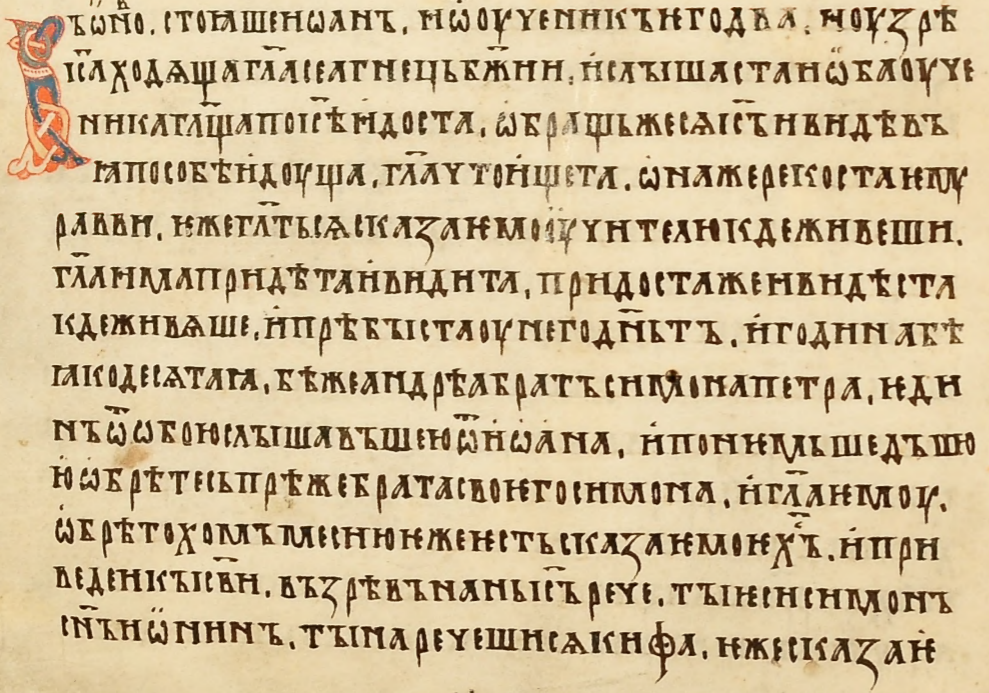 Въѡ҃но. стоꙗшеиѡанъ. иѿоученикъѥгодъва. иоузрѣ
іс҃аходѧщагл҃асеагнецьбж҃ии. ислышастаѡ҃баоуче
никагл҃щапоіс҃ѣидоста. ѡбращьжесѧіс҃ъивидѣвъ
ꙗпособѣидоуща. гл҃ачтоищета. ѡнажерекостаѥмꙋ
равви. ѥжегл҃тьсѧсказаѥмоѹчителюкдеживеши.
гл҃аимапридѣтаивидита. придостажеивидѣста
кдеживѧше. ипрѣбыстаоунегодн҃ьтъ. игодинабѣ
ꙗкодесѧтаꙗ. бѣжеандрѣабратъсимонапетра. ѥди
нъѿѡбоюслышавъшеюѿиѡана. ипонѥмьшедъшю
юѡбрѣтесьпрѣжебратасвоѥгосимона. игл҃аѥмоу.
ѡбрѣтохомъмесиюѥжеѥстьсказаѥмоѥх҃ъ. ипри
ведеикъіс҃ви. възрѣвънаньіс҃ърече. тыѥсисимонъ
сн҃ъиѡнинъ. тынаречешисѧкифа. ѥжесказаѥ